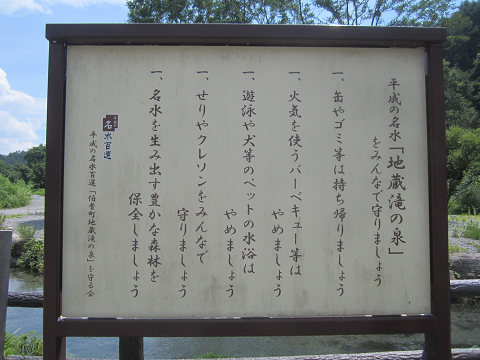 平成の名水「地蔵滝の泉」
をみんなで守りましょう
一、缶やゴミ等は持ち帰りましょう
一、火気を使うバーベキュー等は
やめましょう
一、遊泳や犬等のペットの水浴は
やめましょう
一、せりやクレソンをみんなで
守りましょう
一、名水を生み出す豊かな森林を
保全しましょう
名水百選
平成の名水百選「伯耆町地蔵滝の泉」を守る会